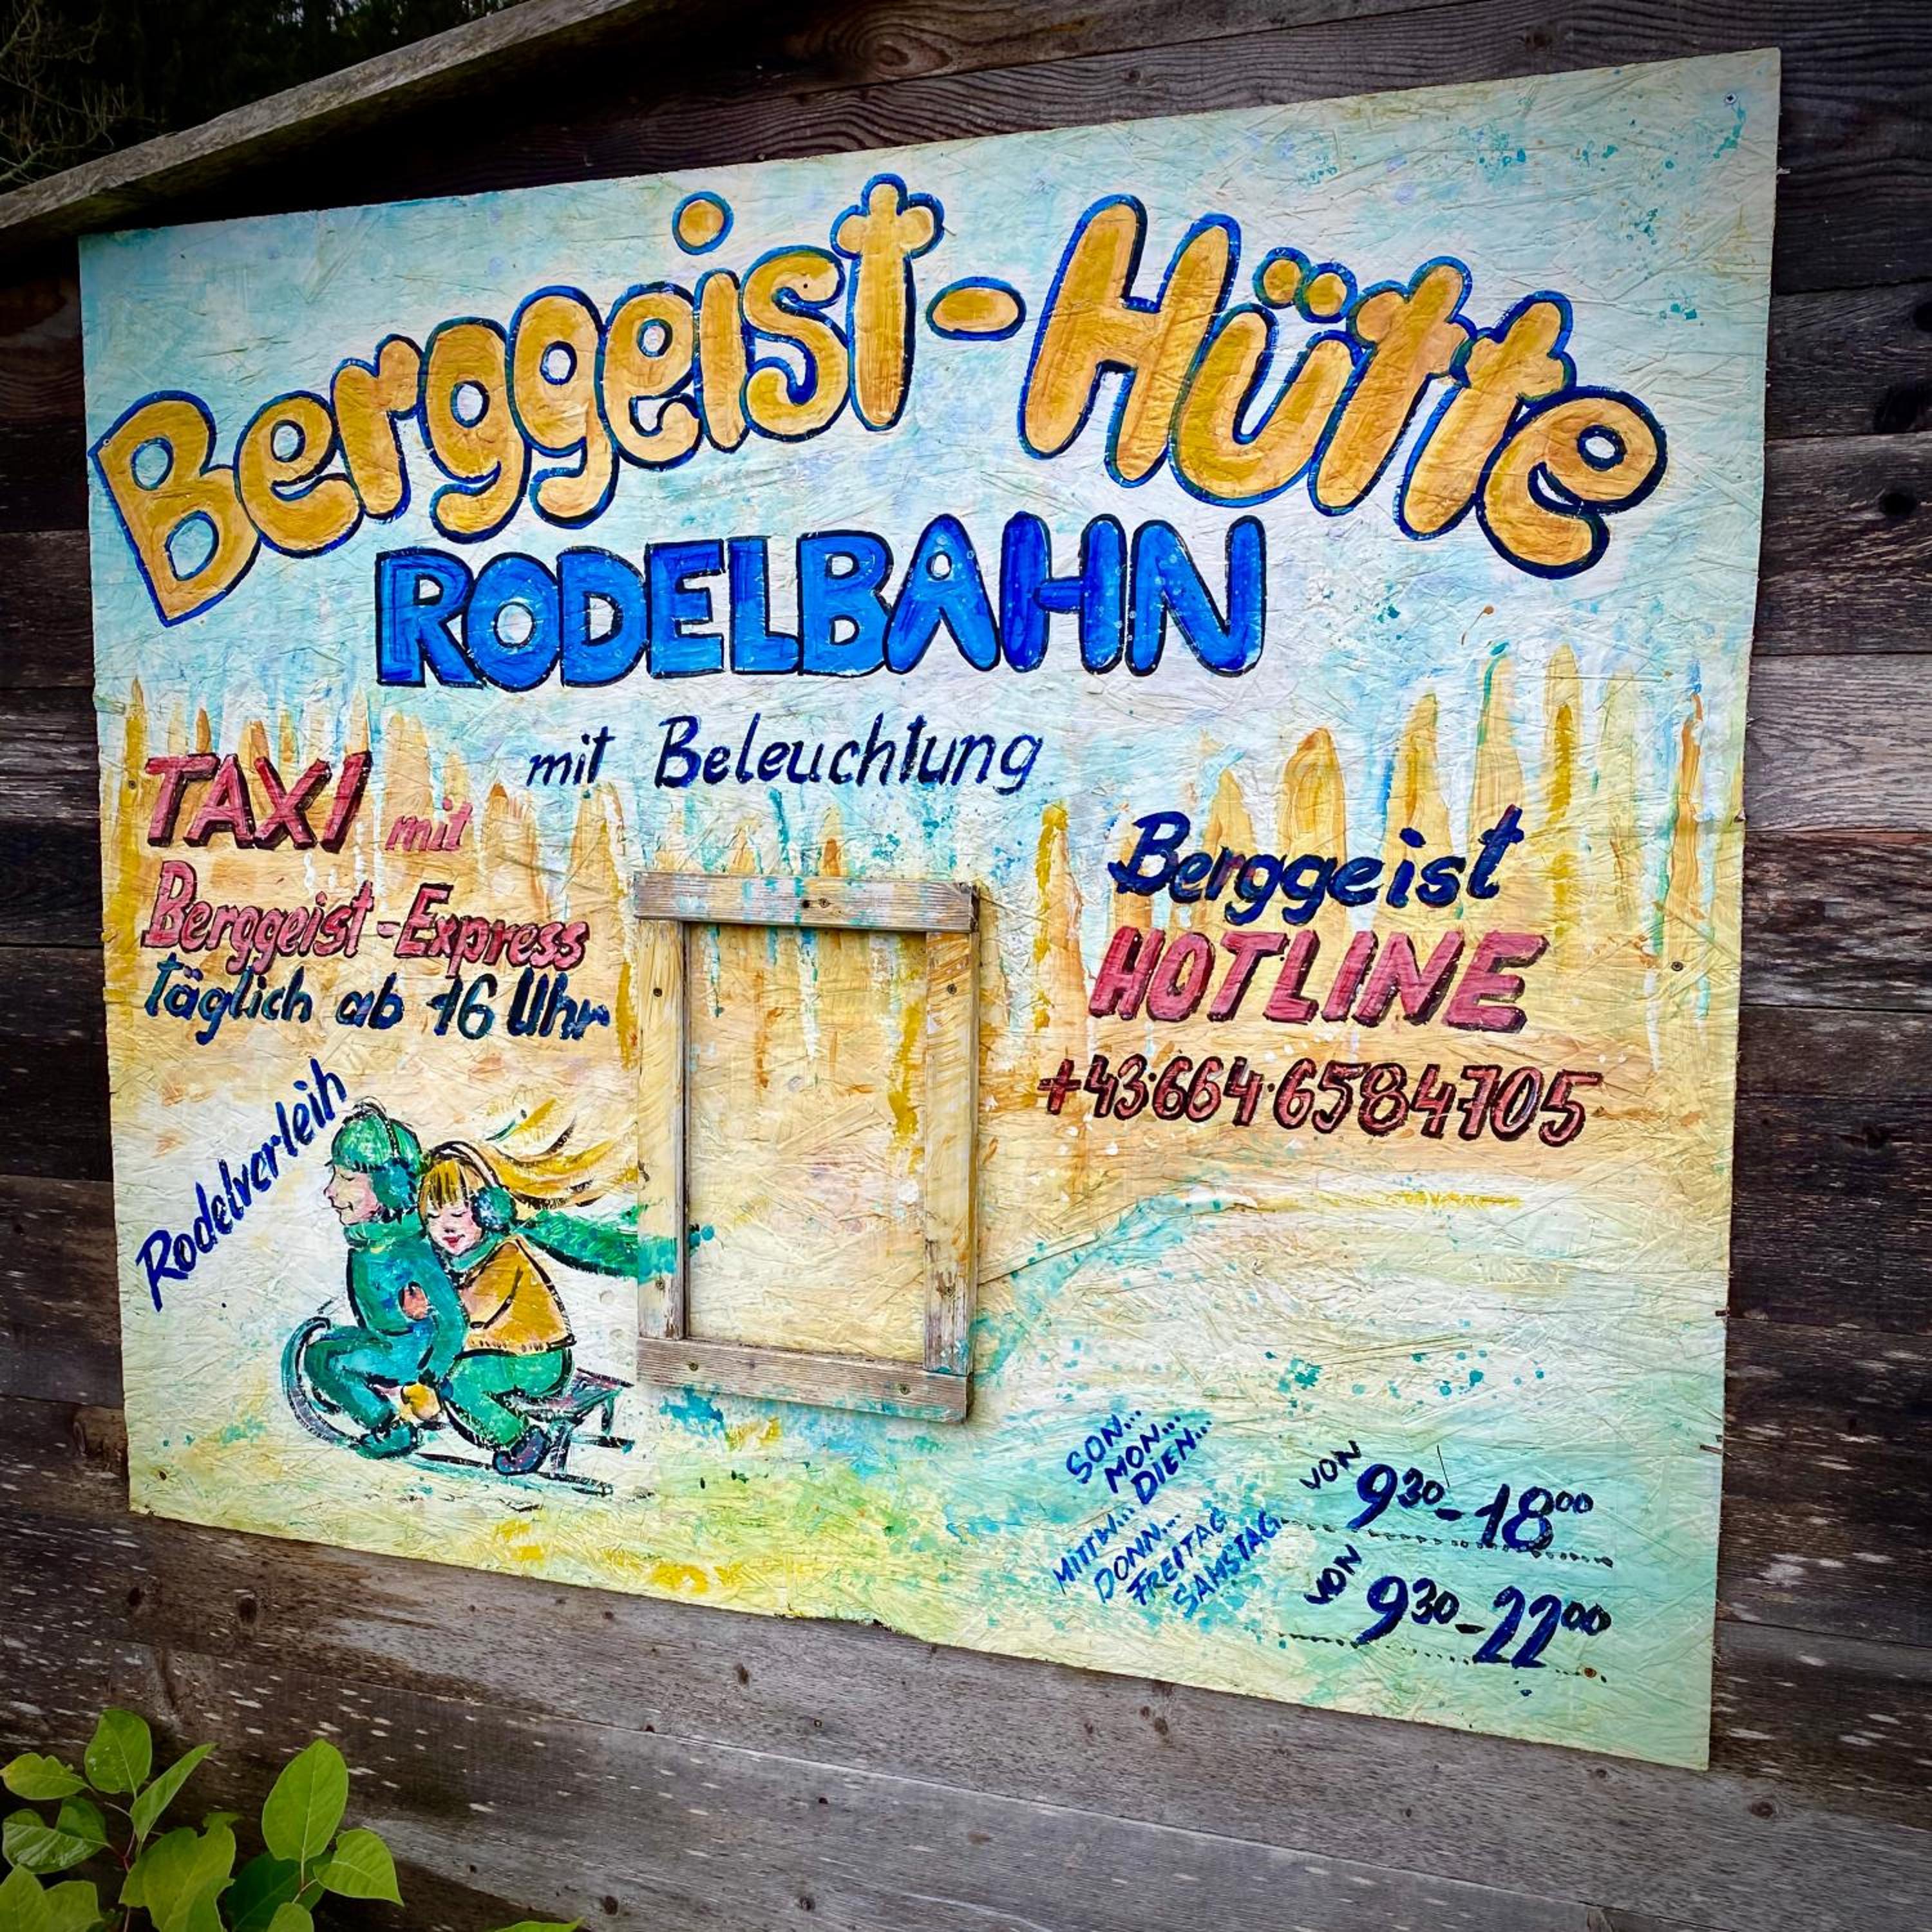 Berggeist-Hütte
RODELBAHN
mit Beleuchtung
TAXI mit
Berggeist-Express
täglich ab 16 Uhr
Rodelverleih
Berggeist
HOTLINE
+43·664·6584705
SON...
MON...
DIEN...
VON 9³⁰-18⁰⁰
MITTW...
DONN...
FREITAG
SAMSTAG
VON 9³⁰-22⁰⁰